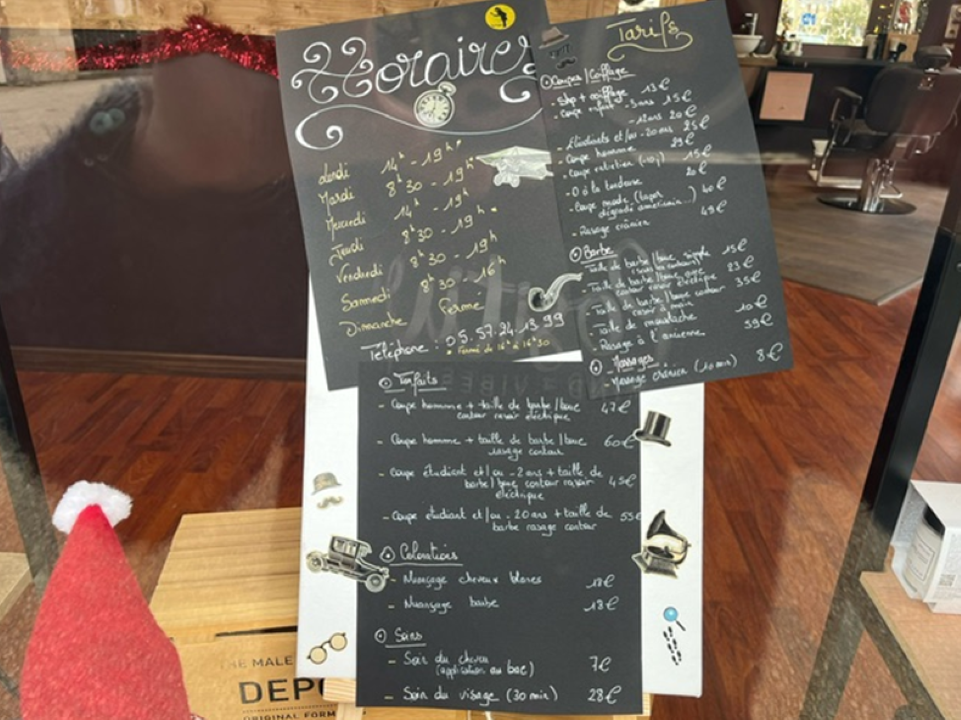 Horaires
Lundi 14h - 19h*
Mardi 8h30 - 19h*
Mercredi 14h - 19h
Jeudi 8h30 - 19h*
Vendredi 8h30 - 19h
Samedi 8h30 - 16h
Dimanche Fermé
Téléphone : 05.57.24.13.99
* Fermé de 16h à 16h30
Tarifs
Coupes / Coiffage
- Shp + coiffage 13€
- Coupe enfant - 3ans 15€
- 12ans 20€
- étudiants et/ou - 20 ans 25€
- Coupe homme 29€
- Coupe entretien 15€
- O à la tondeuse 20€
- Coupe mode (taper dégradé américain...) 40€
- Rasage crânien 49€
Barbe
- Taille de barbe/bouc simple 15€
(sans contour)
- Taille de barbe/bouc avec 23€
contour rasoir électrique
- Taille de barbe/bouc contour 35€
rasoir à main
- Taille de moustache 10€
- Rasage à l'ancienne 39€
Massages
- Massage crânien (10min) 8€
Forfaits
- Coupe homme + taille de barbe/bouc 47€
contour rasoir électrique
- Coupe homme + taille de barbe/bouc 60€
rasage contour
- Coupe étudiant et/ou - 2 ans + taille de
barbe/bouc contour rasoir 45€
électrique
- Coupe étudiant et/ou - 20 ans + taille de 55€
barbe rasage contour
Colorations
- Nuançage cheveux blancs 18€
- Nuançage barbe 18€
Soins
- Soin du cheveu 7€
(application au bac)
- Soin du visage (30 min) 28€
THE MALE
DEP
ORIGINAL FORM